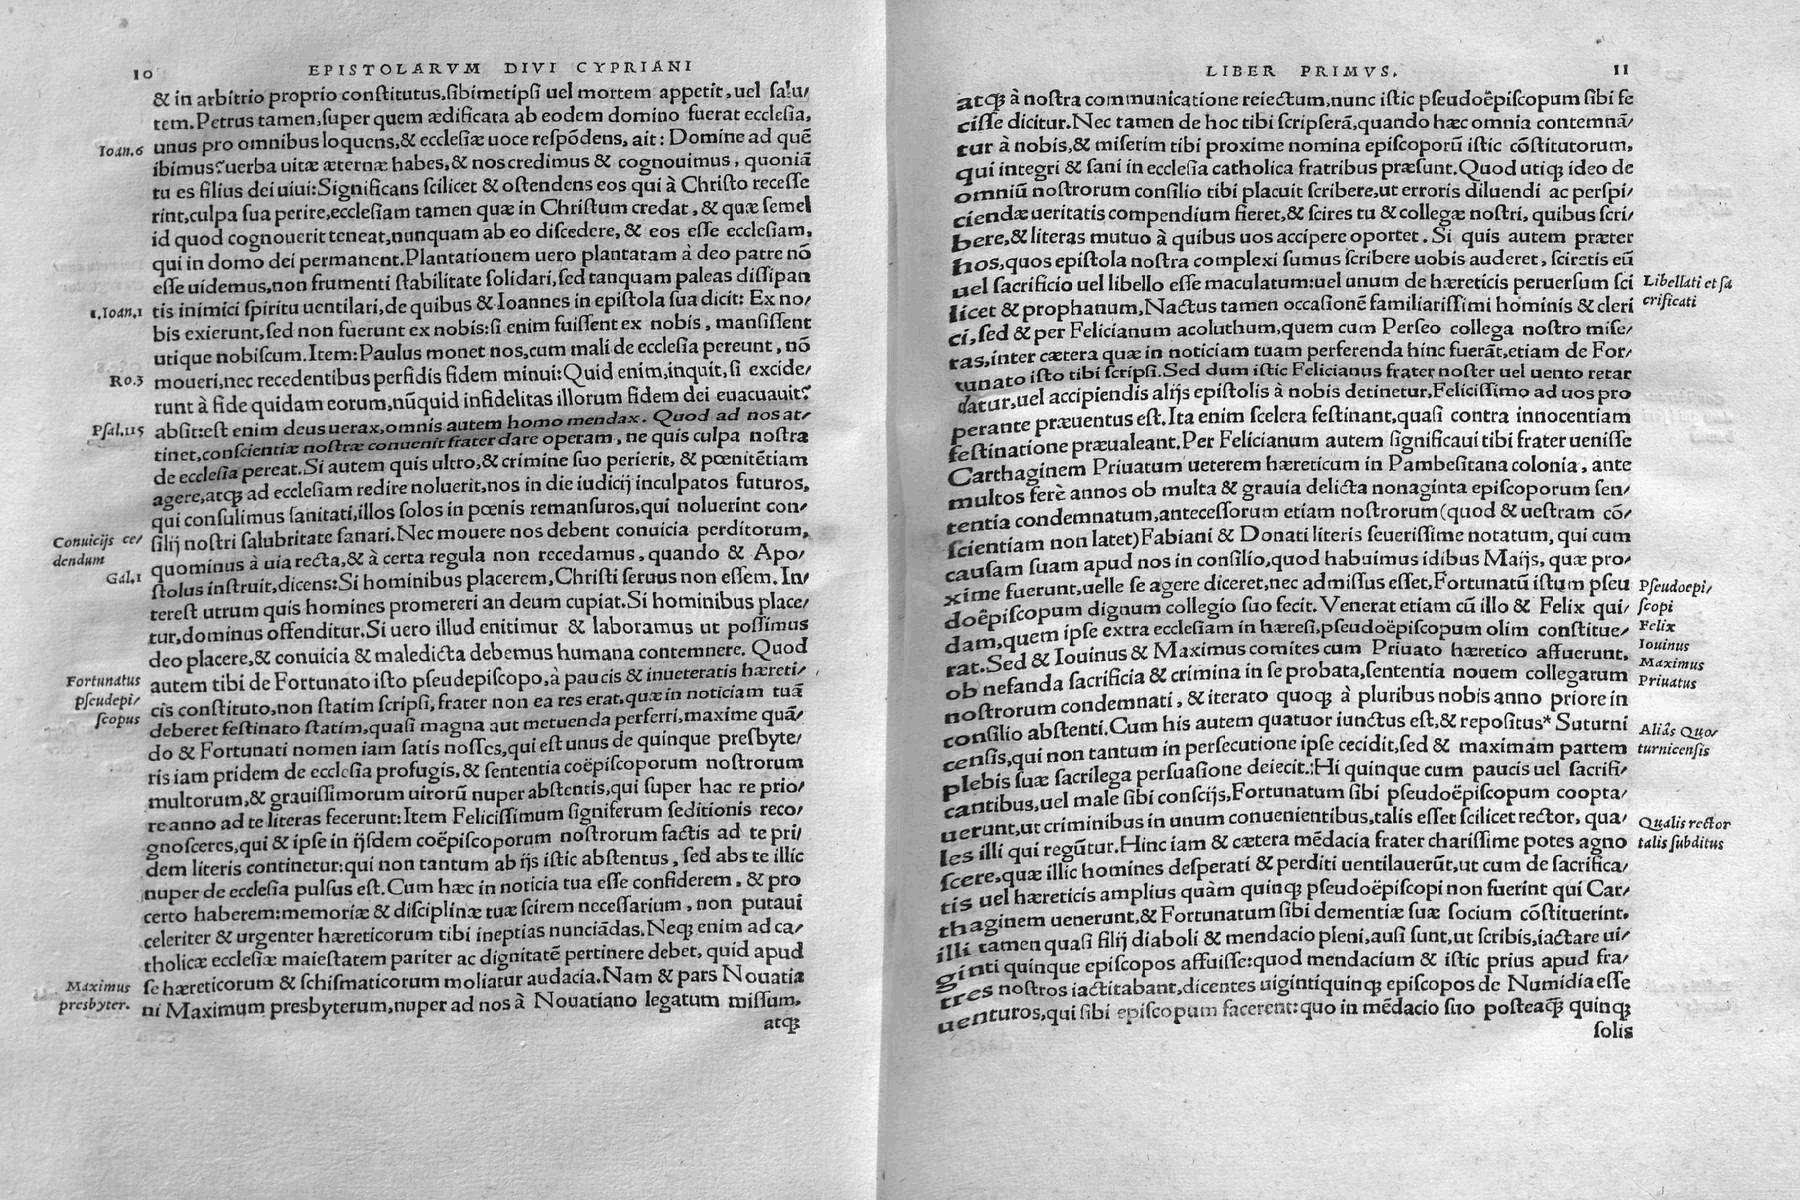 10 EPISTOLARVM DIVI CYPRIANI
& in arbitrio proprio conſtitutus,ſibimetipſi uel mortem appetit,uel ſalu/
tem.Petrus tamen,ſuper quem ædificata ab eodem domino fuerat eccleſia,
Ioan.6 unus pro omnibus loquens,& eccleſiæ uoce reſpõdens, ait: Domine ad quẽ
ibimus?uerba uitæ æternæ habes,& nos credimus & cognouimus, quoniã
tu es filius dei uiui:Significans ſcilicet & oſtendens eos qui à Chriſto receſſe
rint,culpa ſua perire,eccleſiam tamen quæ in Chriſtum credat, & quæ ſemel
id quod cognouerit teneat,nunquam ab eo diſcedere, & eos eſſe eccleſiam,
qui in domo dei permanent.Plantationem uero plantatam à deo patre nõ
eſſe uidemus,non frumenti ſtabilitate ſolidari,ſed tanquam paleas diſſipan
1.Ioan.1 tis inimici ſpiritu uentilari,de quibus & Ioannes in epiſtola ſua dicit: Ex no/
bis exierunt,ſed non fuerunt ex nobis:ſi enim fuiſſent ex nobis, manſiſſent
utique nobiſcum.Item:Paulus monet nos,cum mali de eccleſia pereunt, nõ
Ro.3 moueri,nec recedentibus perfidis fidem minui:Quid enim,inquit,ſi excide/
runt à fide quidam eorum,nũquid infidelitas illorum fidem dei euacuauit?
Pſal.115 abſit:eſt enim deus uerax,omnis autem homo mendax. Quod ad nos at/
tinet,conſcientiæ noſtræ conuenit frater dare operam, ne quis culpa noſtra
de eccleſia pereat.Si autem quis ultro,& crimine ſuo perierit, & pœnitẽtiam
agere,atq; ad eccleſiam redire noluerit,nos in die iudicij inculpatos futuros,
qui conſulimus ſanitati,illos ſolos in pœnis remanſuros,qui noluerint con/
Conuicijs ce/ ſilij noſtri ſalubritate ſanari.Nec mouere nos debent conuicia perditorum,
dendum quominus à uia recta,& à certa regula non recedamus, quando & Apo/
Gal.1 ſtolus inſtruit,dicens:Si hominibus placerem,Chriſti ſeruus non eſſem. In/
tereſt utrum quis homines promereri an deum cupiat.Si hominibus place/
tur,dominus offenditur.Si uero illud enitimur & laboramus ut poſſimus
deo placere,& conuicia & maledicta debemus humana contemnere. Quod
Fortunatus autem tibi de Fortunato iſto pſeudepiſcopo,à paucis & inueteratis hæreti/
pſeudepi/ cis conſtituto,non ſtatim ſcripſi,frater non ea res erat,quæ in noticiam tuã
ſcopus deberet feſtinato ſtatim,quaſi magna aut metuenda perferri,maxime quã/
do & Fortunati nomen iam ſatis noſſes,qui eſt unus de quinque presbyte/
ris iam pridem de eccleſia profugis,& ſententia coëpiſcoporum noſtrorum
multorum,& grauiſſimorum uirorũ nuper abſtentis,qui ſuper hac re prio/
re anno ad te literas fecerunt:Item Feliciſſimum ſigniferum ſeditionis reco/
gnoſceres,qui & ipſe in ijſdem coëpiſcoporum noſtrorum factis ad te pri/
dem literis continetur:qui non tantum ab ijs iſtic abſtentus, ſed abs te illic
nuper de eccleſia pulſus eſt.Cum hæc in noticia tua eſſe confiderem, & pro
certo haberem:memoriæ & diſciplinæ tuæ ſcirem neceſſarium, non putaui
celeriter & urgenter hæreticorum tibi ineptias nunciãdas.Neq; enim ad ca/
tholicæ eccleſiæ maieſtatem pariter ac dignitatẽ pertinere debet, quid apud
Maximus ſe hæreticorum & ſchiſmaticorum moliatur audacia.Nam & pars Nouatia
presbyter. ni Maximum presbyterum,nuper ad nos à Nouatiano legatum miſſum,
atq;
LIBER PRIMVS. 11
atq; à noſtra communicatione reiectum,nunc iſtic pſeudoëpiſcopum ſibi fe
ciſſe dicitur.Nec tamen de hoc tibi ſcripſerã,quando hæc omnia contemnã/
tur à nobis,& miſerim tibi proxime nomina epiſcoporũ iſtic cõſtitutorum,
qui integri & ſani in eccleſia catholica fratribus præſunt.Quod utiq; ideo de
omniũ noſtrorum conſilio tibi placuit ſcribere,ut erroris diluendi ac perſpi/
ciendæ ueritatis compendium fieret,& ſcires tu & collegæ noſtri, quibus ſcri/
bere,& literas mutuo à quibus uos accipere oportet. Si quis autem præter
hos,quos epiſtola noſtra complexi ſumus ſcribere uobis auderet, ſciretis eũ
uel ſacrificio uel libello eſſe maculatum:uel unum de hæreticis peruerſum ſci Libellati et ſa
licet & prophanum,Nactus tamen occaſionẽ familiariſſimi hominis & cleri crificati
ci,ſed & per Felicianum acoluthum,quem cum Perſeo collega noſtro miſe/
ras,inter cætera quæ in noticiam tuam perferenda hinc fuerãt,etiam de For/
tunato iſto tibi ſcripſi.Sed dum iſtic Felicianus frater noſter uel uento retar
datur,uel accipiendis alijs epiſtolis à nobis detinetur,Feliciſſimo ad uos pro
perante præuentus eſt.Ita enim ſcelera feſtinant,quaſi contra innocentiam
feſtinatione præualeant.Per Felicianum autem ſignificaui tibi frater ueniſſe
Carthaginem Priuatum ueterem hæreticum in Pambeſitana colonia, ante
multos ferè annos ob multa & grauia delicta nonaginta epiſcoporum ſen/
tentia condemnatum,anteceſſorum etiam noſtrorum(quod & ueſtram cõ/
ſcientiam non latet)Fabiani & Donati literis ſeueriſſime notatum, qui cum
cauſam ſuam apud nos in conſilio,quod habuimus idibus Maijs, quæ pro/
xime fuerunt,uelle ſe agere diceret,nec admiſſus eſſet,Fortunatũ iſtum pſeu Pſeudoepi/
doëpiſcopum dignum collegio ſuo fecit. Venerat etiam cũ illo & Felix qui/ ſcopi
dam,quem ipſe extra eccleſiam in hæreſi,pſeudoëpiſcopum olim conſtitue/ Felix
rat.Sed & Iouinus & Maximus comites cum Priuato hæretico affuerunt, Iouinus
ob nefanda ſacrificia & crimina in ſe probata,ſententia nouem collegarum Maximus
noſtrorum condemnati, & iterato quoq; à pluribus nobis anno priore in Priuatus
conſilio abſtenti.Cum his autem quatuor iunctus eſt,& repoſitus* Suturni Aliâs Quo/
cenſis,qui non tantum in perſecutione ipſe cecidit,ſed & maximam partem turnicenſis
plebis ſuæ ſacrilega perſuaſione deiecit.:Hi quinque cum paucis uel ſacrifi/
cantibus,uel male ſibi conſcijs,Fortunatum ſibi pſeudoëpiſcopum coopta/
uerunt,ut criminibus in unum conuenientibus,talis eſſet ſcilicet rector, qua/ Qualis rector
les illi qui regũtur.Hinc iam & cætera mẽdacia frater chariſſime potes agno talis ſubditus
ſcere,quæ illic homines deſperati & perditi uentilauerũt,ut cum de ſacrifica/
tis uel hæreticis amplius quàm quinq; pſeudoëpiſcopi non fuerint qui Car/
thaginem uenerunt,& Fortunatum ſibi dementiæ ſuæ ſocium cõſtituerint,
illi tamen quaſi filij diaboli & mendacio pleni,auſi ſunt,ut ſcribis,iactare ui/
ginti quinque epiſcopos affuiſſe:quod mendacium & iſtic prius apud fra/
tres noſtros iactitabant,dicentes uigintiquinq; epiſcopos de Numidia eſſe
uenturos,qui ſibi epiſcopum facerent:quo in mẽdacio ſuo poſteaq̃ quinq;
ſolis